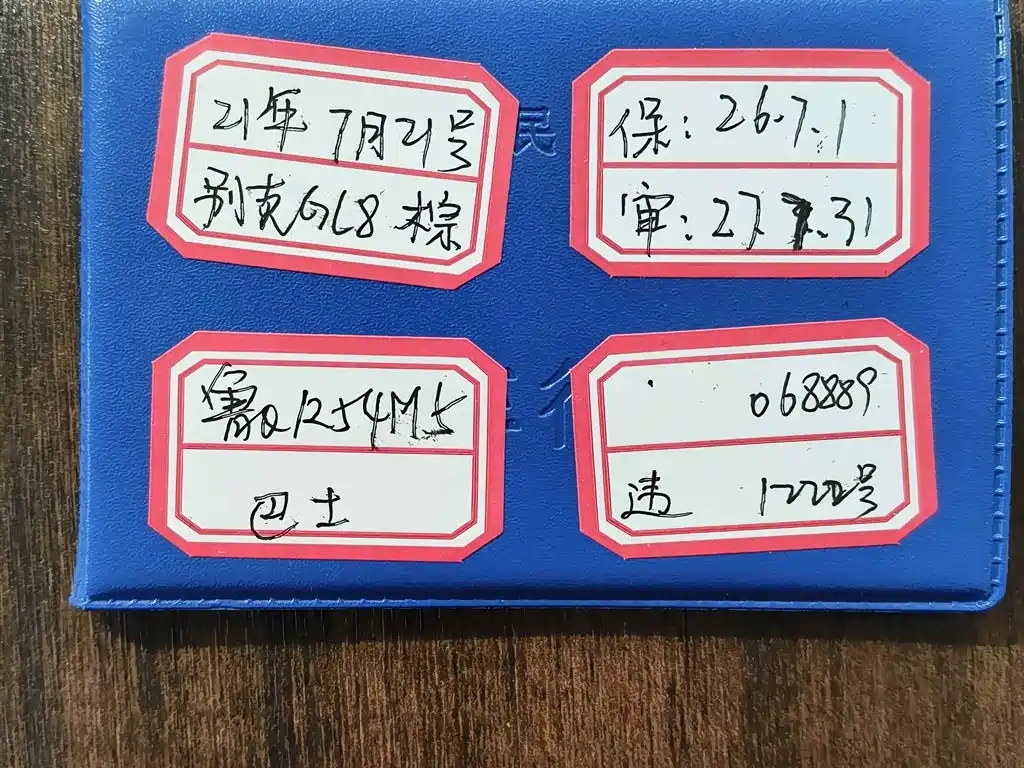 21年 7月21号
别克GL8 棕
保: 26.7.1
审: 27.7.31
民
K54M5
巴士
068889
违 1222号